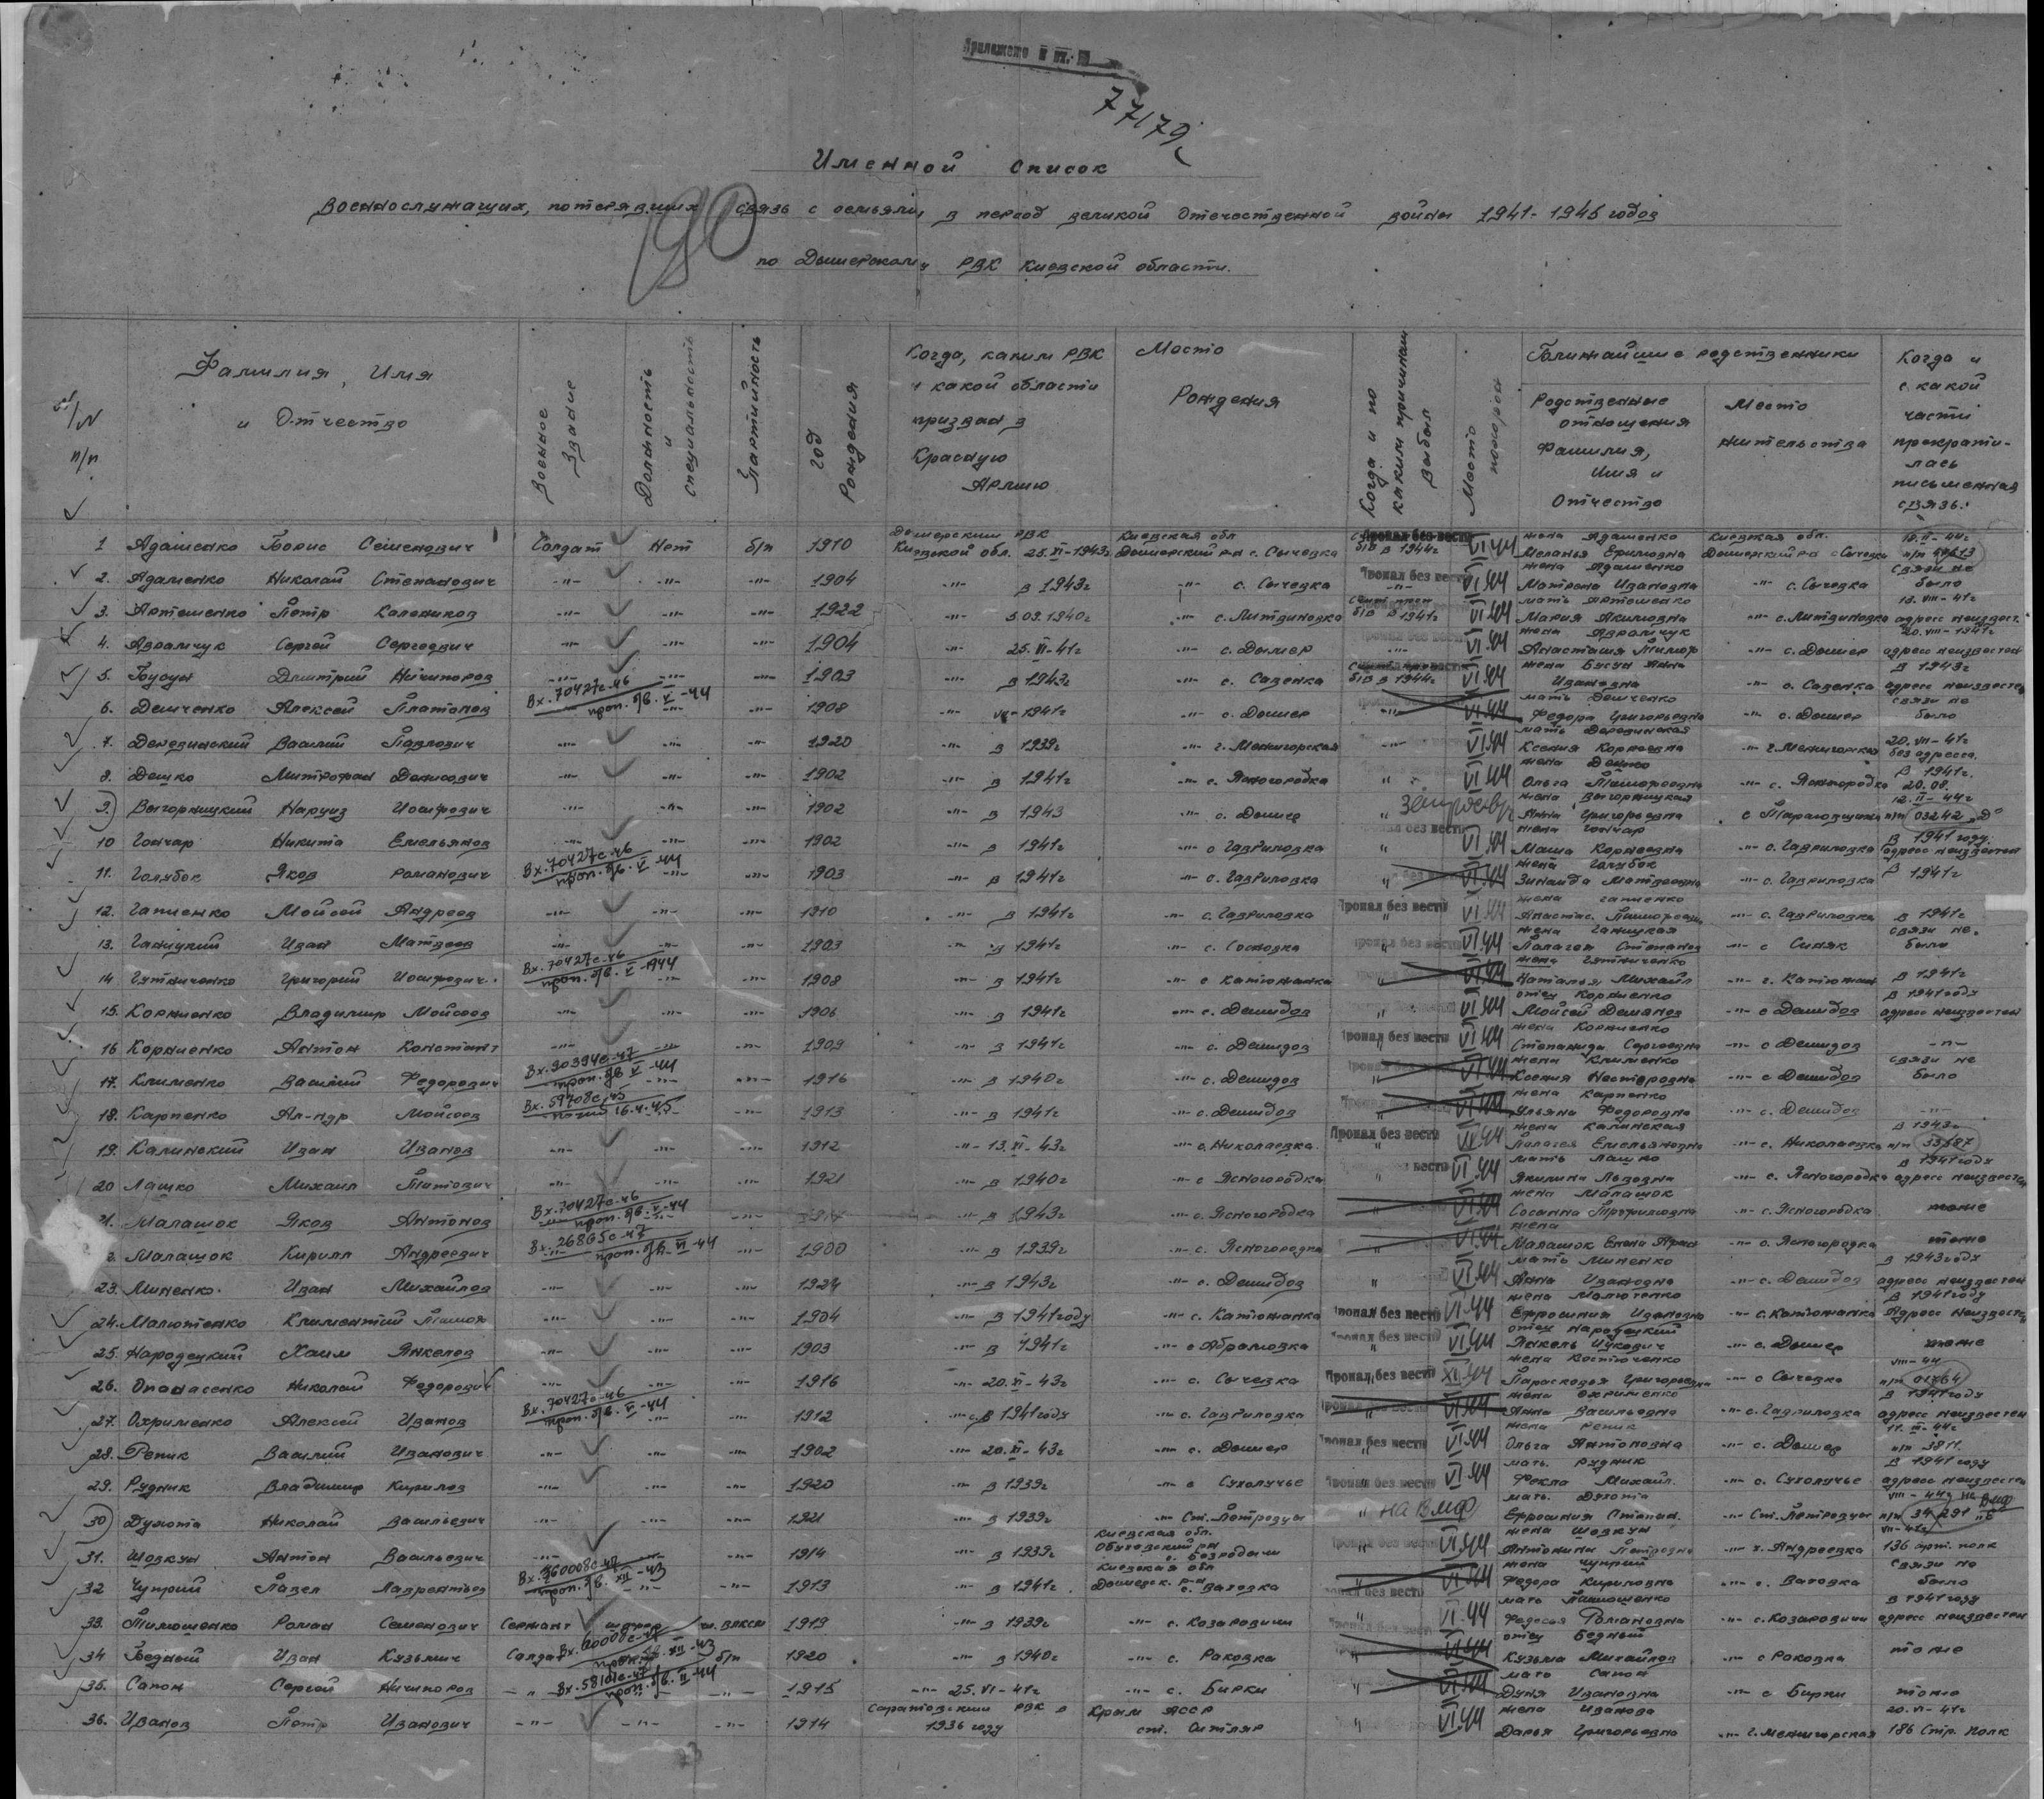 Приложено
77179с
Именной список
военнослужащих, потерявших связь с семьями в период великой Отечественной войны 1941-1945 годов
по Дымерскому РВК Киевской области.
№ п/п
Фамилия, Имя и Отчество
Военное звание
Должность и специальность
Партийность
Год Рождения
Когда, каким РВК и какой области призван в Красную Армию
Место Рождения
Когда и по каким причинам выбыл
Место похорон
Ближайшие родственники
Родственные отношения Фамилия, Имя и Отчество
Место жительства
Когда и с какой части прекратилась письменная связь.
1 Адаменко Борис Семенович Солдат Нет б/п 1910 Дымерским РВК Киевской обл. 25.XI-1943г Киевская обл Дымерский р-н с. Сычевка Пропал без вести б/в в 1944г VI.44 жена Адаменко Меланья Ефимовна Киевская обл. Дымерский р-н с Сычевка 18.II-44г п/п 49613
2. Адаменко Николай Степанович -"- -"- -"- 1904 -"- в 1943г -"- с. Сычевка Пропал без вести VI.44 жена Адаменко Матрена Ивановна -"- с. Сычевка связи не было
3. Артеменко Петр Калеников -"- -"- -"- 1922 -"- 5.03.1940г -"- с. Литвиновка б/в в 1941г VI.44 мать Артеменко Мария Акимовна -"- с. Литвиновка 13.VIII-41г адресс неизвест.
4. Аврамчук Сергей Сергеевич -"- -"- -"- 1904 -"- 25.VI-41г -"- с. Дымер -"- VI.44 жена Аврамчук Анастасия Тимоф -"- с. Дымер 20.VIII-1941г адресс неизвестен
5. Бусун Дмитрий Ничипоров -"- -"- -"- 1903 -"- в 1943г -"- с. Савенка б/в в 1944г VI.44 жена Бусун Анна Ивановна -"- с. Савенка в 1943г адресс неизвестен
6. Демченко Алексей Платонов Вх.70427с-46 проп. б/в. V-44 -"- -"- 1908 -"- 1941г -"- с. Дымер -"- VI.44 мать Демченко Федора Григорьевна -"- с. Дымер связи не было
7. Василий Павлович -"- -"- -"- 1920 -"- в 1939г -"- г. Межигорская -"- VI.44 мать Ксения Корнеевна -"- г. Межигорская 20.VII-41г без адресса.
8. Дешко Митрофан Денисович -"- -"- -"- 1902 -"- в 1941г -"- с. Ясногородка VI.44 жена Дешко Ольга Тимофеевна -"- с. Ясногородка в 1941г. 20.08.
9. Выгорницкий Наркиз Иосифович -"- -"- -"- 1902 -"- в 1943 -"- с. Дымер жена Выгорницкая Анна Григорьевна 12.II-44г п/п 03242
10 Гончар Никита Емельянов -"- -"- -"- 1902 -"- в 1941г -"- с Гавриловка " VI.44 жена Гончар Маша Корнеевна -"- с. Гавриловка В 1941 году адресс неизвестен
11. Голубок Яков романович Вх.70427с-46 проп. б/в. V-44 -"- -"- 1903 -"- в 1941г -"- с. Гавриловка " VI.44 жена Голубок Зинаида Матвеевна -"- с. Гавриловка в 1941г
12. Гапченко Мойсей Андреев -"- -"- -"- 1910 -"- в 1941г -"- с. Гавриловка Пропал без вести VI.44 жена Анастас. Тимофеевна -"- с. Гавриловка в 1941г
13. Ганицкий Иван Матвеев -"- -"- -"- 1903 -"- в 1941г -"- с. Сосновка Пропал без вести VI.44 жена Ганицкая Палагея Степанов -"- с Синяк связи не. было
14 Гутниченко Григорий Иосифович. Вх.70427с-46 проп. б/в. V-1944 -"- -"- 1908 -"- в 1941г -"- с Катюжанка " VI.44 жена Гутниченко Наталья Михайл -"- с. Катюжан в 1941г
15. Корниенко Владимир Мойсеев -"- -"- -"- 1906 -"- в 1941г -"- с. Демидов " VI.44 отец Корниенко Мойсей Демянов -"- с Демидов в 1941году адресс неизвестен
16 Корниенко Антон Констант -"- -"- -"- 1909 -"- в 1941г -"- с. Демидов Пропал без вести VI.44 жена Корниенко Степанида Сергеевна -"- с Демидов -"-
17. Клименко Василий Федорович Вх.90394с-47 проп. б/в V-44 -"- -"- 1916 -"- в 1940г -"- с. Демидов " VI.44 жена Клименко Ксения Нестеровна -"- с Демидов связи не было
18. Карпенко Ал-ндр Мойсеев Вх.59708с/45 погиб 16.4.45 -"- 1913 -"- в 1941г -"- с. Демидов VI.44 жена Карпенко Ульяна Федоровна -"- с. Демидов -"-
19. Калинский Иван Иванов -"- -"- -"- 1912 -"- 13.XI-43г -"- с. Николаевка. Пропал без вести VI.44 жена Калинская Палагея Емельяновна -"- с. Николаевка в 1943г п/п 33687
20 Лашко Михаил Титович -"- -"- -"- 1921 -"- в 1940г -"- с Ясногородка вести VI.44 мать Лашко Акилина Львовна -"- с. Ясногородка в 1941году адресс неизвестен
21. Малашок Яков Антонов Вх.70427с-46 проп. б/в. V-44 -"- -"- в 1943г -"- с. Ясногородка " VI.44 жена Малашок Сосанна Трофимовна -"- с. Ясногородка тоже
Малашок Кирилл Андреевич Вх.26865с-47 проп. б/в. VI-44 -"- 1900 -"- в 1939г -"- с. Ясногородка VI.44 жена Малашок Елена -"- с. Ясногородка тоже
23. Миненко. Иван Михайлов -"- -"- -"- 1924 -"- в 1943г -"- с. Демидов " VI.44 мать Миненко Анна Ивановна -"- с. Демидов в 1943году адресс неизвестен
24. Малютенко Климентий Тимоф -"- -"- -"- 1904 -"- в 1941году -"- с. Катюжанка Пропал без вести VI.44 жена Малютенко Ефросиния Ивановна -"- с. Катюжанка в 1941году Адресс неизвестен
25. Народецкий Хаим Янкелев -"- -"- -"- 1903 -"- в 1941г -"- с Абрамовка Пропал без вести VI.44 отец Народецкий Янкель Цукович -"- с. Дымер тоже
26. Опанасенко Николай Федорович -"- -"- -"- 1916 -"- 20.XI-43г -"- с. Сычевка Пропал без вести XI.44 жена Костюченко Парасковья Григорьевна -"- с Сычевка VIII-44 п/п 01764
27. Охрименко Алексей Иванов Вх.70427с-46 проп. б/в. V-44 -"- -"- 1912 -"- в 1941году -"- с. Гавриловка VI.44 жена Охрименко Анна Васильевна -"- с. Гавриловка в 1941году адресс неизвестен
28. Репик Василий Иванович -"- -"- -"- 1902 -"- 20.XI-43г -"- с. Дымер Пропал без вести VI.44 жена Репик Ольга Антоновна -"- с. Дымер 11.III-44г п/п 3811.
29. Рудник Владимир Кирилов -"- -"- -"- 1920 -"- в 1939г -"- с Сухолучье Пропал без вести VI.44 мать. Рудник Фекла Михайл. -"- с. Сухолучье в 1941 году адресс неизвестен
30 Духота Николай Васильевич -"- -"- -"- 1921 -"- в 1939г -"- Ст. Петровцы " на ВМФ мать. Духота Ефросиния Степан. -"- Ст. Петровцы VIII-44г на ВМФ п/п 34291
31. Шовкун Антон Васильевич -"- -"- -"- 1914 -"- в 1939г Киевская обл. Обуховский р-н с. Безродичи VI.44 жена Шовкун Антонина Петровна -"- с. Андреевка VII-41г 136 арт. полк
32 Чуприй Павел Лаврентьев Вх.360008с-47 проп. б/в. XII-43 -"- -"- 1913 -"- в 1941г. Киевская обл Дымерск. р-н с. Ватовка " VI.44 жена Чуприй Федора Кириловна -"- с. Ватовка связи не было
33. Тимошенко Роман Семенович Сержант чл. ВЛКСМ 1919 -"- в 1939г -"- с. Козаровичи " VI.44 мать Тимошенко Федосья Романовна -"- с. Козаровичи в 1941 году адресс неизвестен
34 Бедный Иван Кузьмич Солдат Вх.60008с-47 XII-43 б/п 1920 -"- в 1940г -"- с. Раковка VI.44 отец Бедный Кузьма Михайлов -"- с Раковка тоже
35. Сапон Сергей Ничипоров -"- Вх.58101с-47 проп. б/в. II-44 -"- 1915 -"- 25.VI-41г -"- с. Бирки " VI.44 мать Сапон Дуня Ивановна -"- с Бирки тоже
36. Иванов Петр Иванович -"- -"- -"- 1914 Саратовский РВК в 1936 году Крым АССР " VI.44 жена Иванова Дарья Григорьевна -"- г. Межигорская 20.VI-41г 186 Стр. Полк